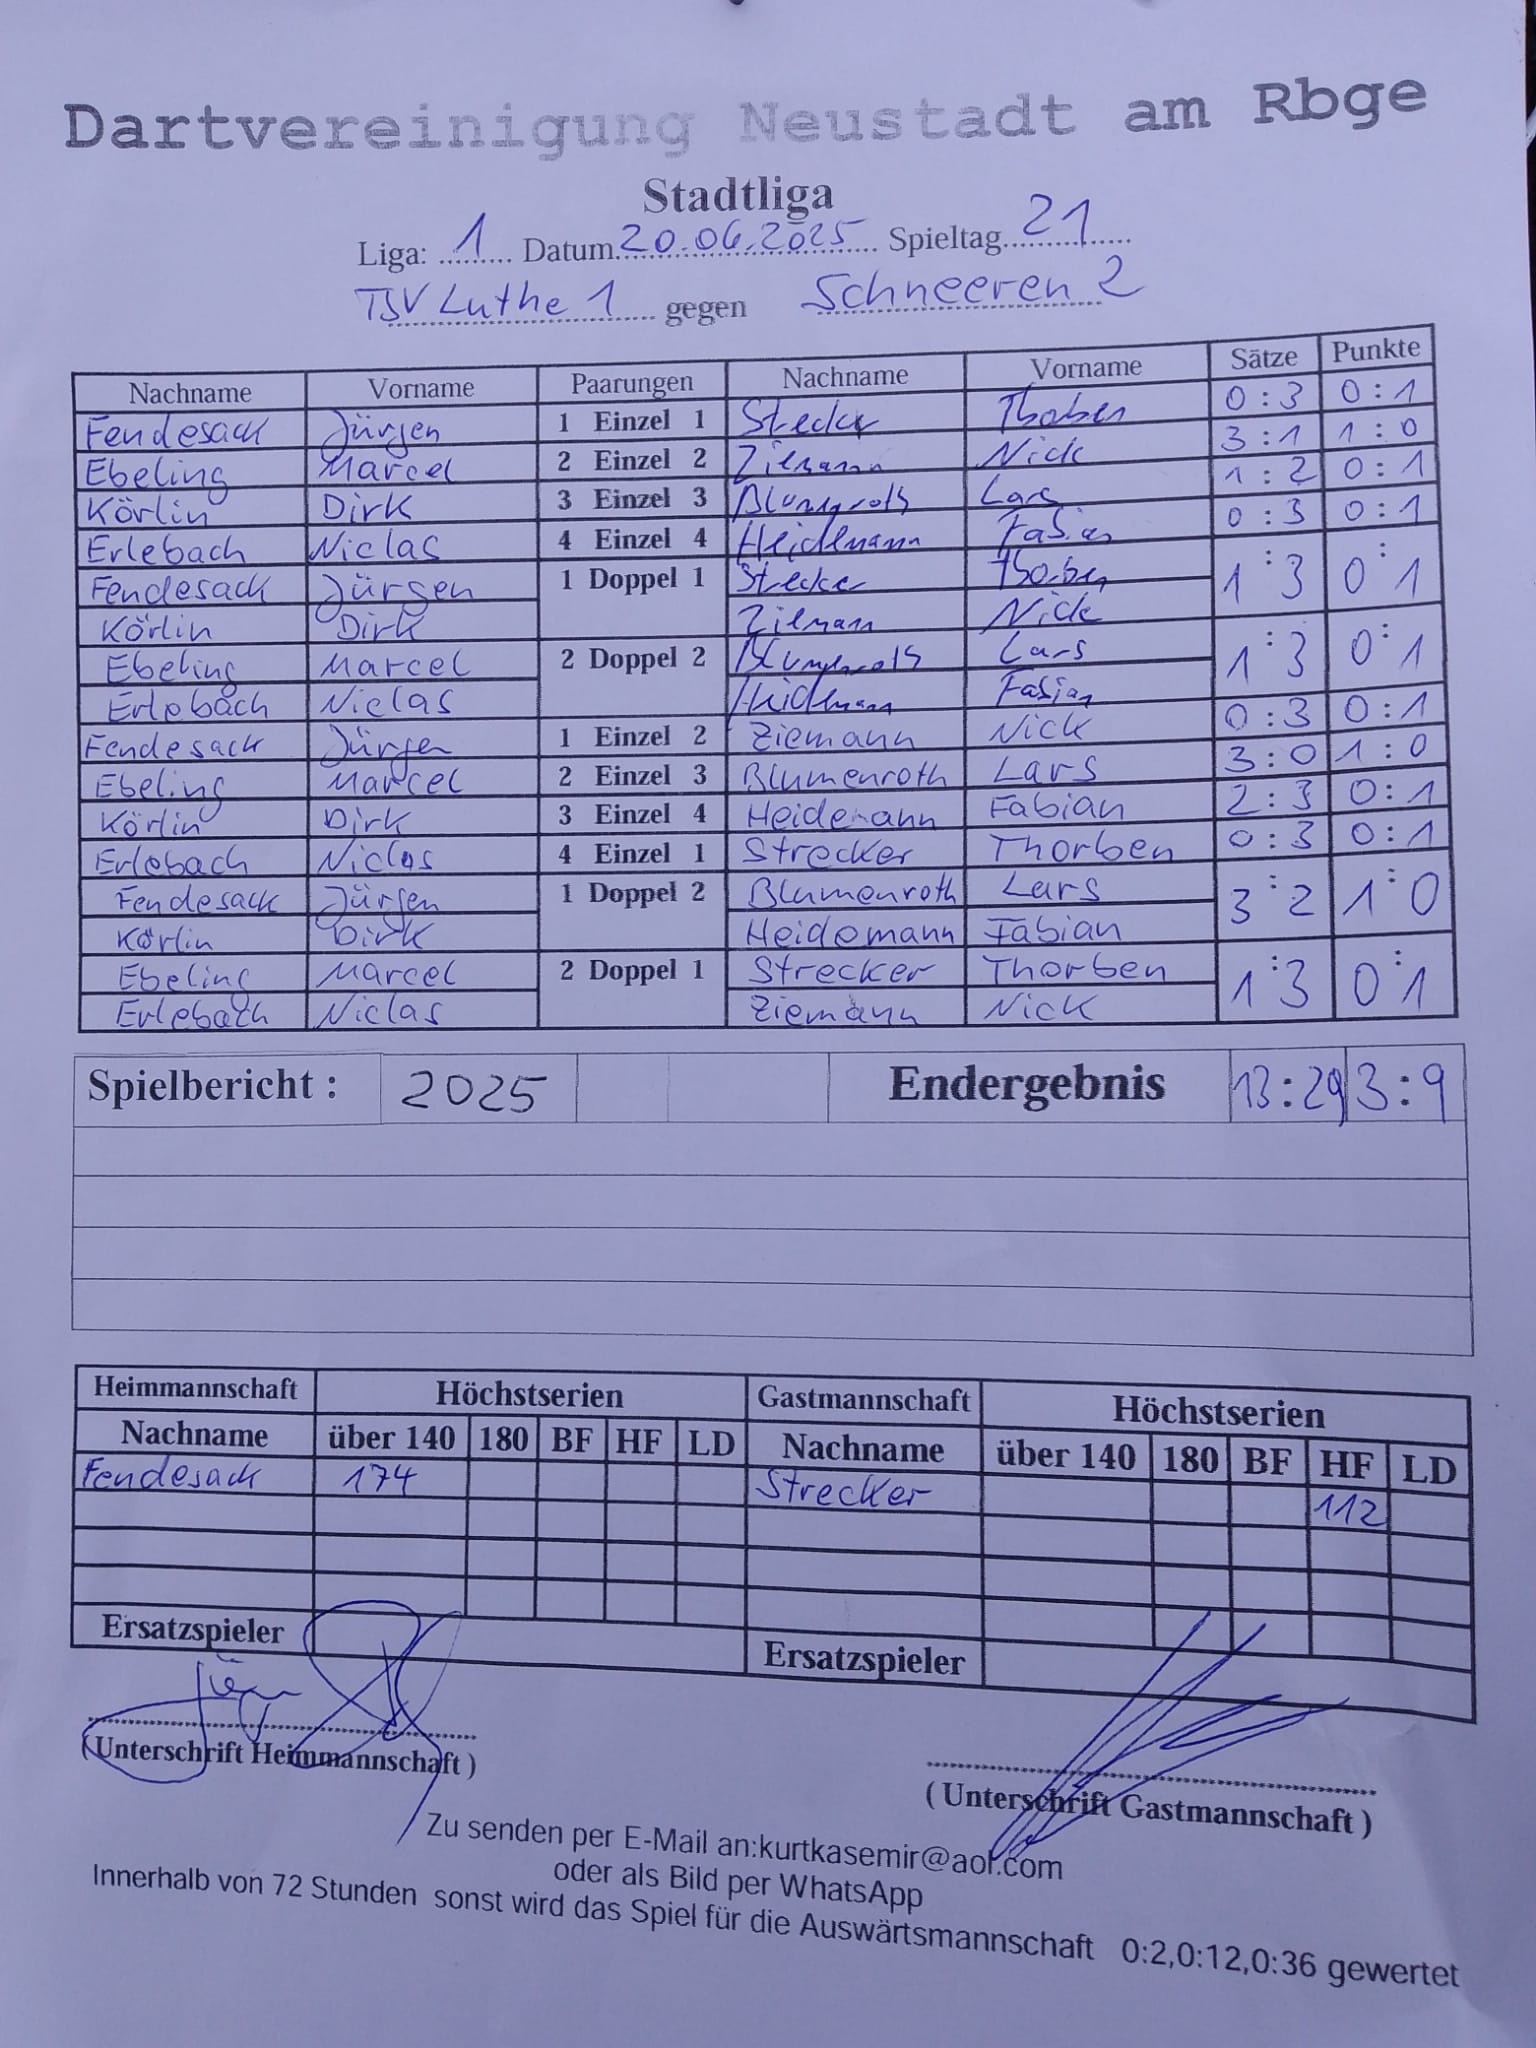 Dartvereinigung Neustadt am Rbge
Stadtliga
Liga: 1 Datum 20.06.2025 Spieltag 21
TSV Luthe 1 gegen Schneeren 2
Nachname Vorname Paarungen Nachname Vorname Sätze Punkte
Fendesack Jürgen 1 Einzel 1 Strecker Thorben 0:3 0:1
Ebeling Marcel 2 Einzel 2 Ziemann Nick 3:1 1:0
Körlin Dirk 3 Einzel 3 Blumenroth Lars 1:2 0:1
Erlebach Niclas 4 Einzel 4 Heidemann Fabian 0:3 0:1
Fendesack Jürgen 1 Doppel 1 Strecker Thorben 1:3 0:1
Körlin Dirk Ziemann Nick
Ebeling Marcel 2 Doppel 2 Blumenroth Lars 1:3 0:1
Erlebach Niclas Heidemann Fabian
Fendesack Jürgen 1 Einzel 2 Ziemann Nick 0:3 0:1
Ebeling Marcel 2 Einzel 3 Blumenroth Lars 3:0 1:0
Körlin Dirk 3 Einzel 4 Heidemann Fabian 2:3 0:1
Erlebach Niclas 4 Einzel 1 Strecker Thorben 0:3 0:1
Fendesack Jürgen 1 Doppel 2 Blumenroth Lars 3:2 1:0
Körlin Dirk Heidemann Fabian
Ebeling Marcel 2 Doppel 1 Strecker Thorben 1:3 0:1
Erlebach Niclas Ziemann Nick
Spielbericht : 2025 Endergebnis 13:29 3:9
Heimmannschaft Höchstserien Gastmannschaft Höchstserien
Nachname über 140 180 BF HF LD Nachname über 140 180 BF HF LD
Fendesack 174 Strecker 112
Ersatzspieler Ersatzspieler
( Unterschrift Heimmannschaft )
( Unterschrift Gastmannschaft )
Zu senden per E-Mail an:kurtkasemir@aol.com
oder als Bild per WhatsApp
Innerhalb von 72 Stunden sonst wird das Spiel für die Auswärtsmannschaft 0:2,0:12,0:36 gewertet